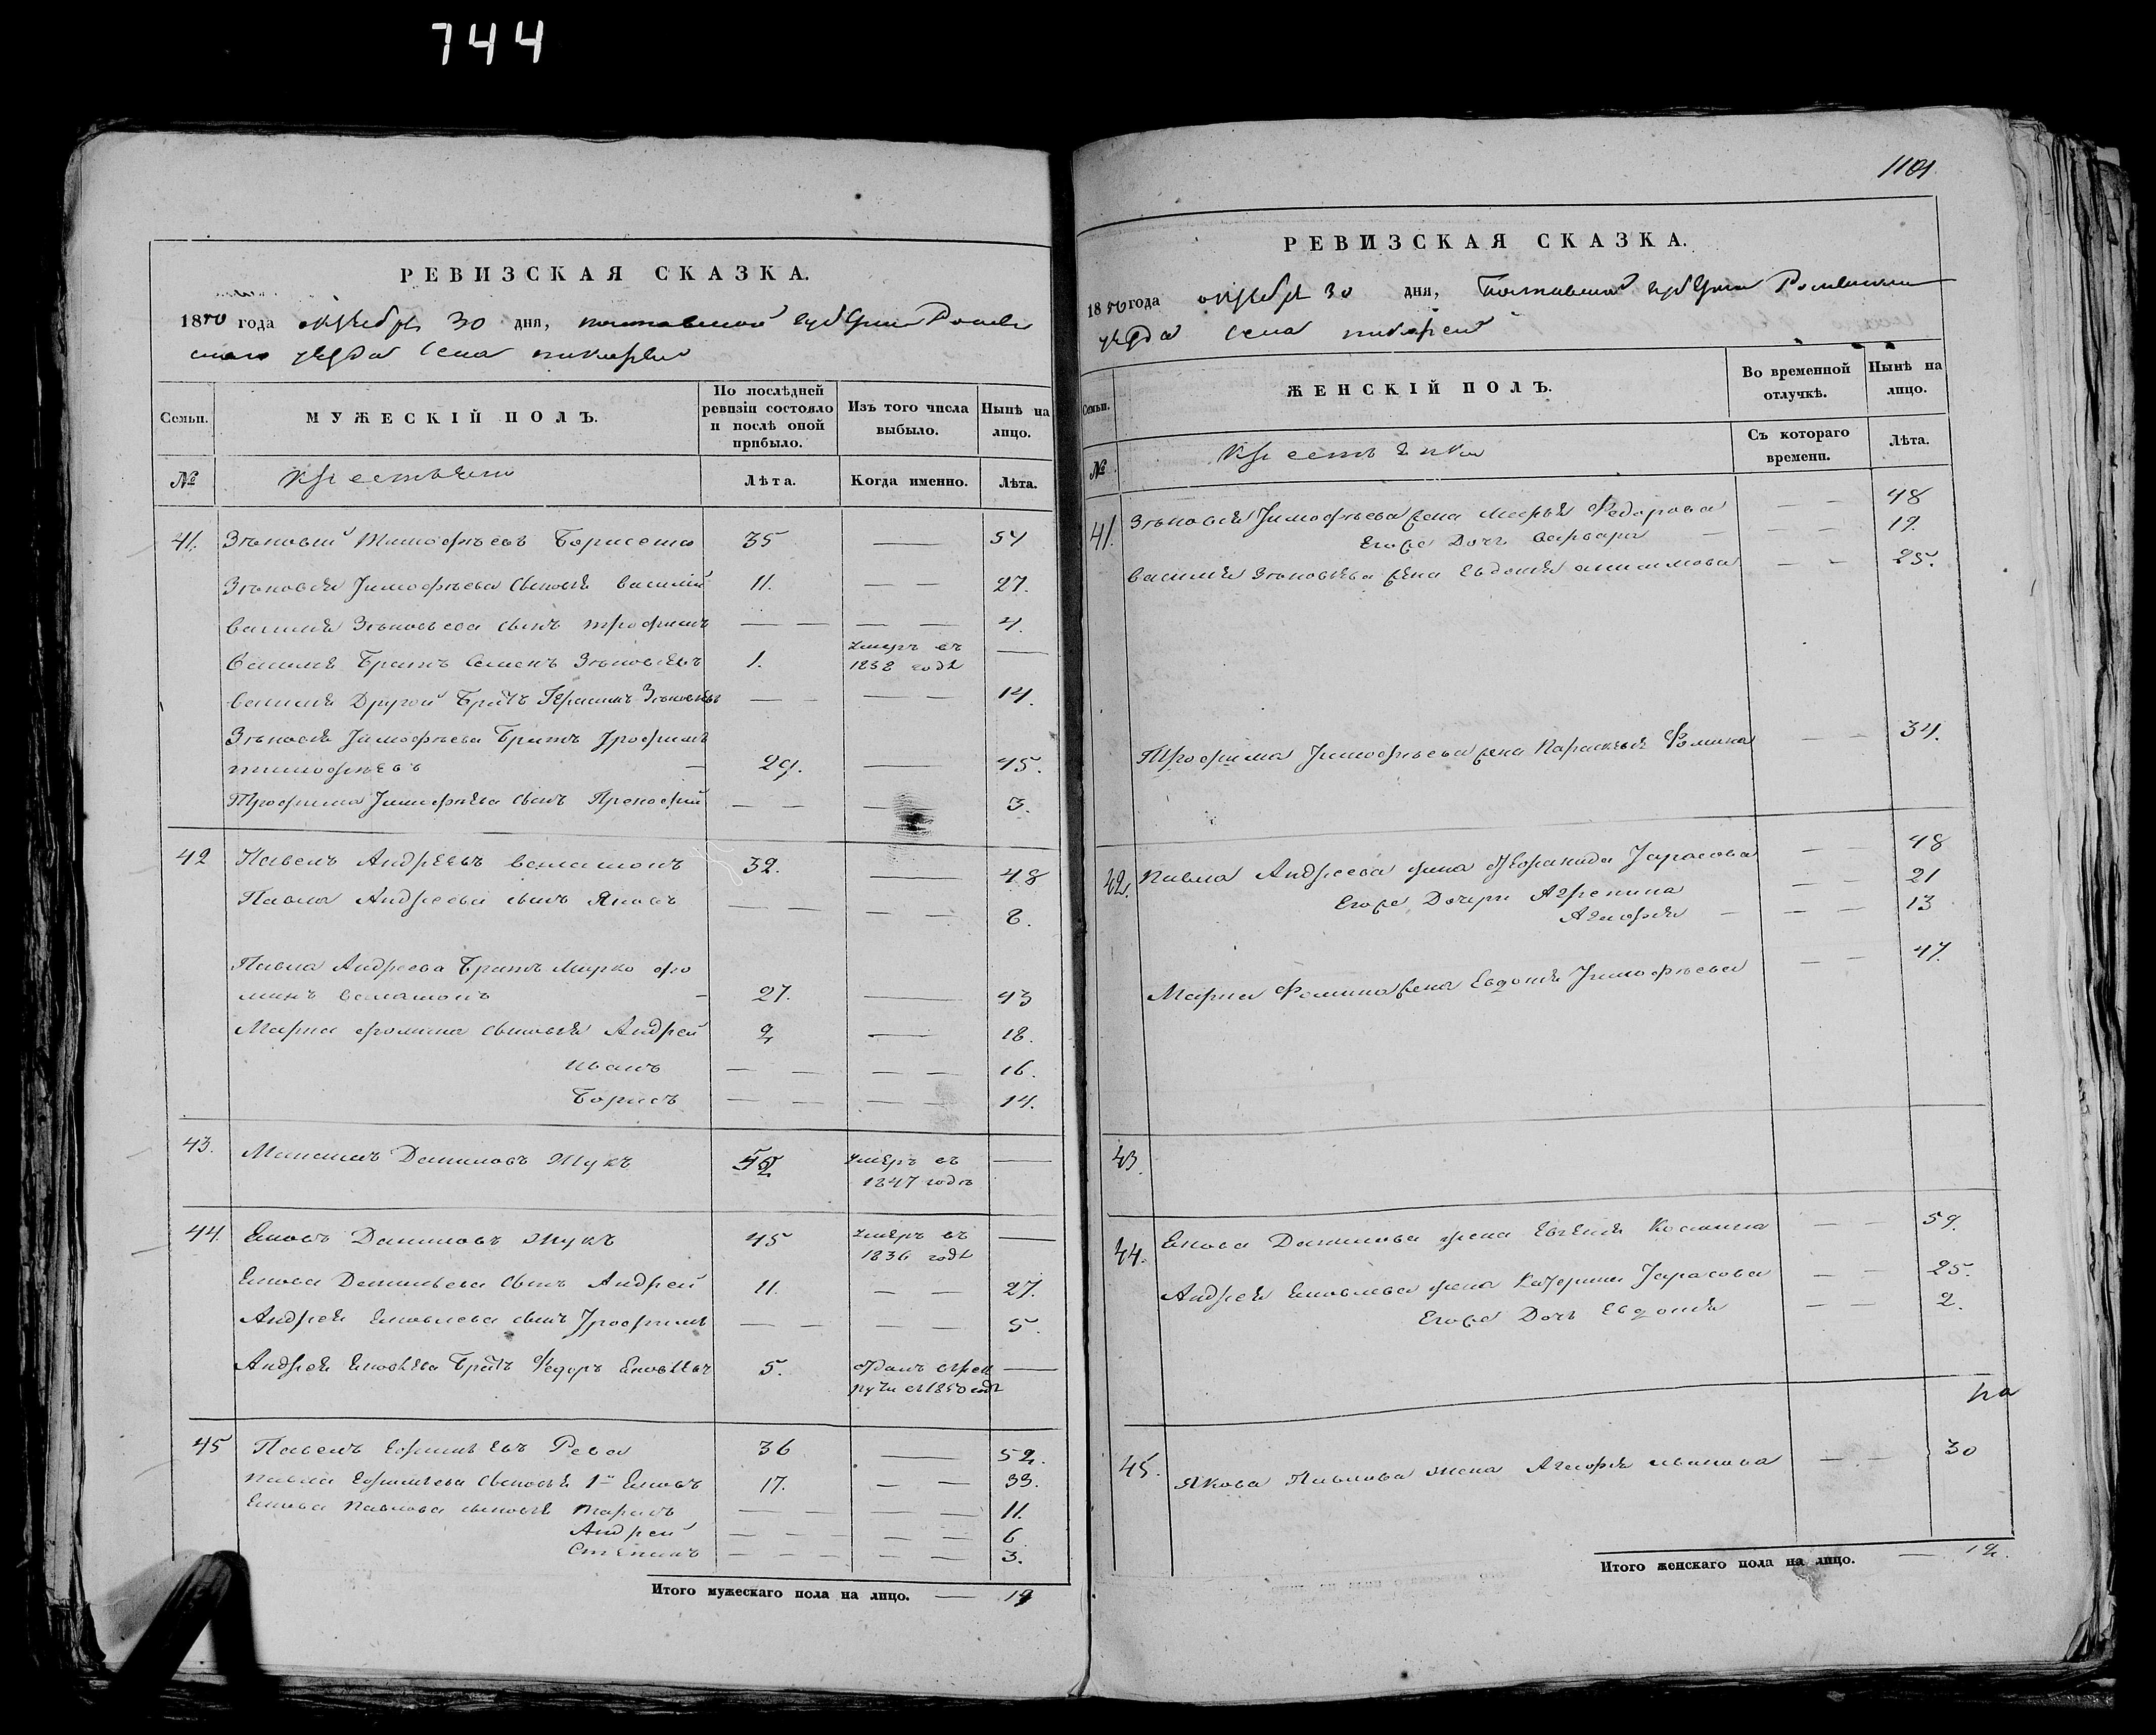 744
РЕВИЗСКАЯ СКАЗКА.
1850 года октября 30 дня, полтавской губернии Ромен
скаго уезда села
Семьи.
МУЖЕСКІЙ ПОЛЪ.
По послѣдней ревизіи состояло и послѣ оной прибыло.
Изъ того числа выбыло.
Нынѣ на лицо.
№
Крестьяне
Лѣта.
Когда именно.
Лѣта.
41. Зѣновій Тимофѣевъ Борисенко 35 — 54
Зѣновія Тимофѣева сыновья Василій 11. — — 27.
Василія Зѣновьева сынъ Трофимъ — — — — 4.
Василія Братъ Семенъ Зѣновьевъ 1. умеръ въ 1838 годѣ —
Василія Другой Братъ Герасимъ Зѣновьевъ — — — — 14.
Зѣновія Тимофѣева Братъ Трофимъ
Тимофѣевъ — 29. — 45.
Трофима Тимофѣева сынъ Прокофій — — — 3.
42 Павелъ Андрѣевъ 32. — 48
Павла Андреева сынъ Яковъ — — — — 8.
Павла Андреева Братъ Марко Фо
минъ — 27. — 43
Марка Фомина сыновья Андрей 2 — 18.
Иванъ — — — — 16.
Борисъ — — — — 14.
43. Даниловъ Жукъ 52 умеръ въ 1847 годѣ —
44. Яковъ Даниловъ Жукъ 45 умеръ въ 1836 годѣ —
Якова Данилова сынъ Андрей 11. — — 27.
Андрея Яковлева сынъ Трофимъ — — — — 5.
Андрея Яковлева Братъ Федоръ Яковлевъ 5. отданъ въ рек
руты въ 1850 годѣ —
45 Павелъ Рева 36 — 52.
Павла сыновья 1й Яковъ 17. — — 33.
Якова Павлова сыновья Тарасъ — — — — 11.
Андрей — — — — 6
Степанъ — — — — 3.
Итого мужескаго пола на лицо. — 19
1101
РЕВИЗСКАЯ СКАЗКА.
1850 года октября 30 дня, Полтавской губернии Роменскаго
уезда села
Семьи.
ЖЕНСКІЙ ПОЛЪ.
Во временной отлучкѣ.
Нынѣ на лицо.
№
Крестьянки
Съ котораго времени.
Лѣта.
41. Зѣновія Тимофѣева жена Марья Федорова — 48
Егоже Дочь Варвара — — — 12.
Василія Зѣновьева жена Евдокія Анисимова — — 25.
Трофима Тимофѣева жена Параскевія Фомина — — 34.
42. Павла Андреева жена Тарасова — — 48
Егоже Дочери Агрепина — — 21
Агафія — — — 13
Марка Фомина жена Евдокія Тимофѣева — — 47.
43.
44. Якова Данилова жена Евгенія Косьмина — — 59.
Андрея Яковлева жена Катерина Тарасова — — 25.
Егоже Дочь Евдокія — — 2.
45. Якова Павлова жена Агафія Иванова — — 30
Итого женскаго пола на лицо. — 12.